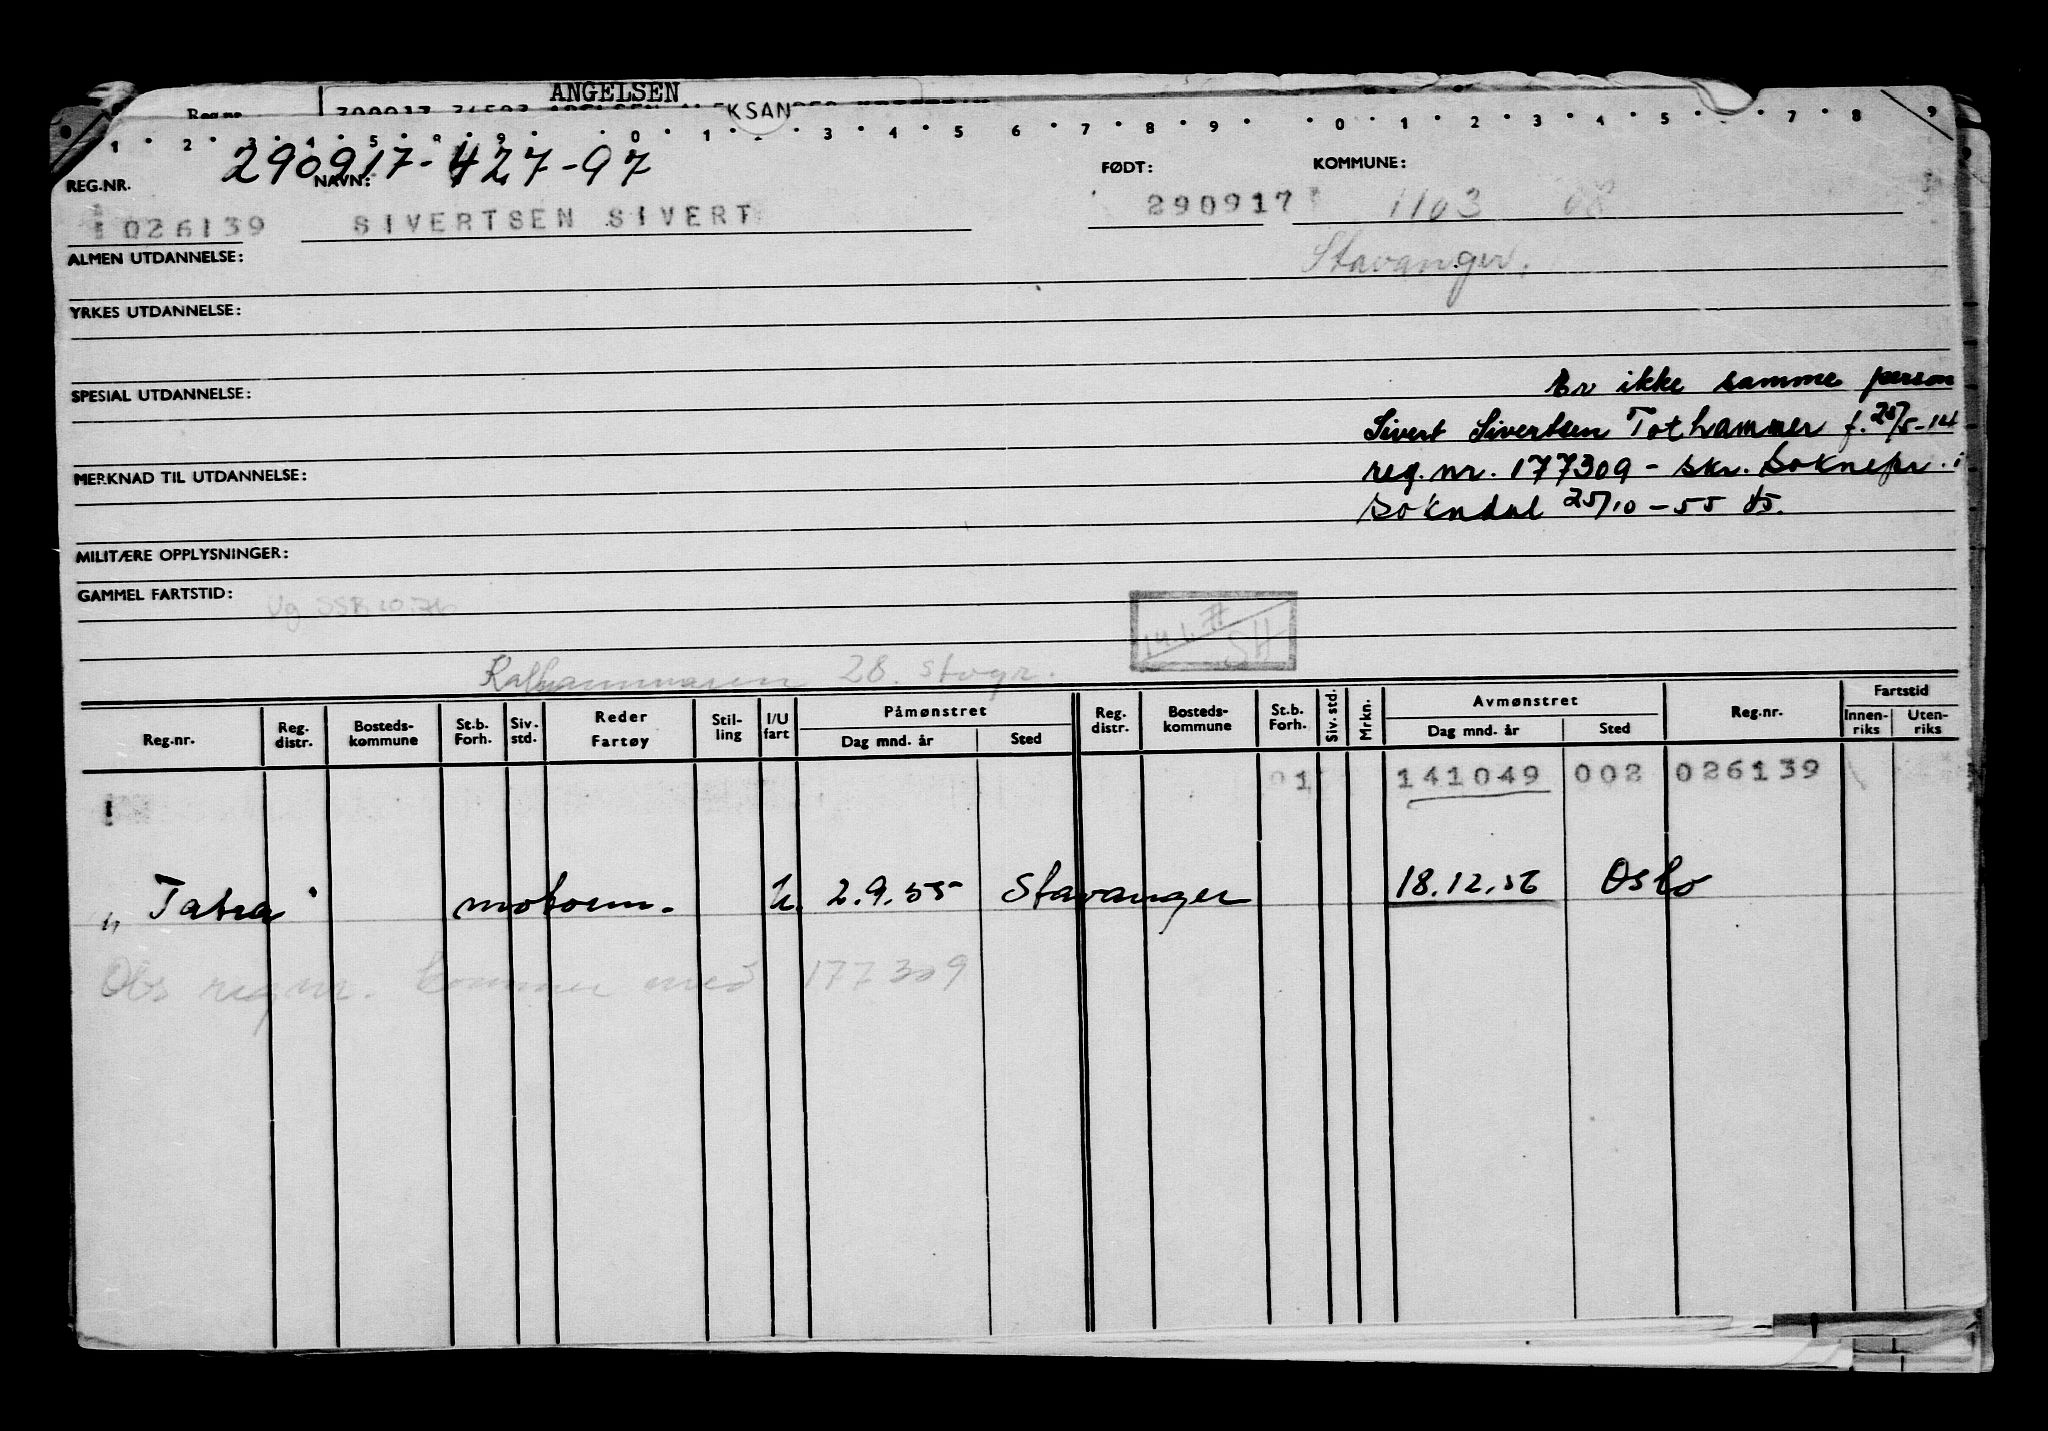 ANGELSEN
Reg.nr.
KSAN
1 2 3 4 5 9 0 1 3 4 5 6 7 8 9 0 1 2 3 4 5 7 8 9
290917-427-97
REG.NR. NAVN: FØDT: KOMMUNE:
026139 SIVERTSEN SIVERT 290917 1103 08
ALMEN UTDANNELSE: Stavanger.
YRKES UTDANNELSE:
SPESIAL UTDANNELSE: Er ikke samme person
Sivert Sivertsen Tothammer f. 25/5-14
MERKNAD TIL UTDANNELSE: reg.nr. 177309 - skr. Soknepr. i
Sokndal 25/10-55
MILITÆRE OPPLYSNINGER:
GAMMEL FARTSTID:
SH
28. Stvgr.
Reg.nr. Reg. distr. Bosteds-kommune St.b. Forh. Siv. std. Reder Fartøy Stil-ling I/U fart Påmønstret Dag mnd. år Sted Reg. distr. Bosteds-kommune St.b. Forh. Siv. std. Mrkn. Avmønstret Dag mnd. år Sted Reg.nr. Fartstid Innen-riks Uten-riks
1 141049 002 026139
"Tatra" motorm. U. 2.9.55 Stavanger 18.12.56 Oslo
Obs reg.nr. kommer med 177309